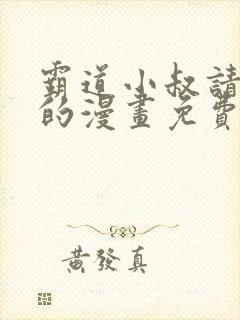 霸道小叔請
的漫畫免費
黃發真